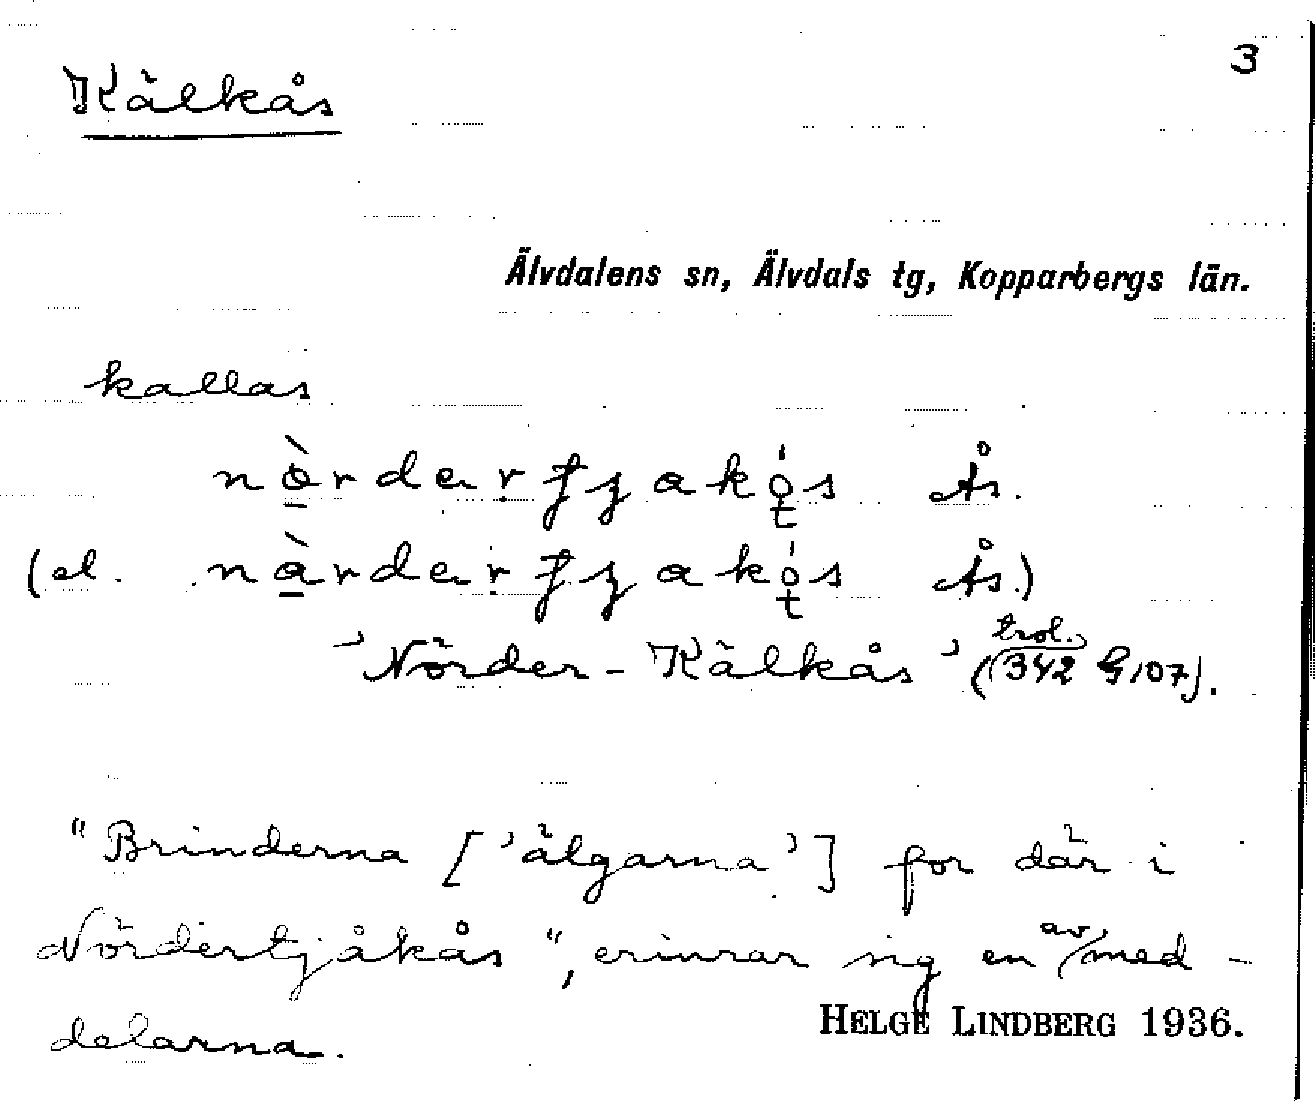 3
Kälkås
Älvdalens sn, Älvdals tg, Kopparbergs län.
kallas
nò̠rderfjakǫ́s Ås.
(el. nà̠rderfjakǫ́s Ås.)
'Nörder-Kälkås' (trol. 342 G 107).
"Brinderna ['älgarna'] for där i
Nördertjåkås", erinrar sig en av med-
delarna.
HELGE LINDBERG 1936.